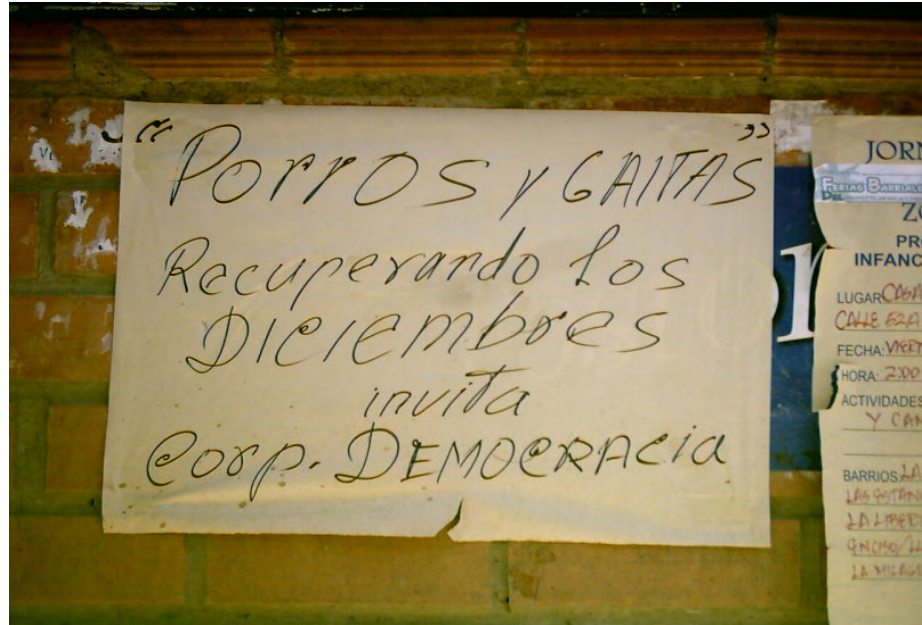 “ PORROS y GAITAS ”
Recuperando los
DICIEMbres
invita
Corp. DEMOCRACIA
JORN
FERIAS BARRIALES
PR
INFANC
LUGAR
CALLE 52A
FECHA:
HORA: 2:00
ACTIVIDADES
Y CAN
BARRIOS LA
LA LIBER